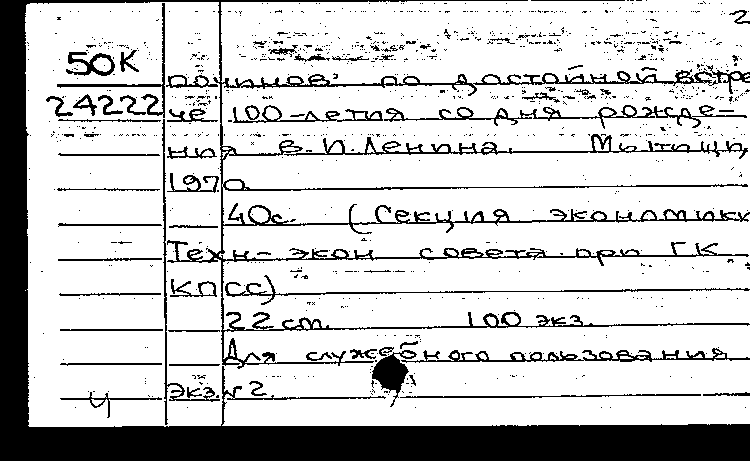 2
50К
починов: по достойной встре
24222 че 100-летия со дня рожде-
ния В.И.Ленина. Мытищи,
1970.
40с. (Секция экономики
Техн-экон совета при ГК
КПСС)
22 см. 100 экз.
Для служебного пользования
экз. №2.
ч